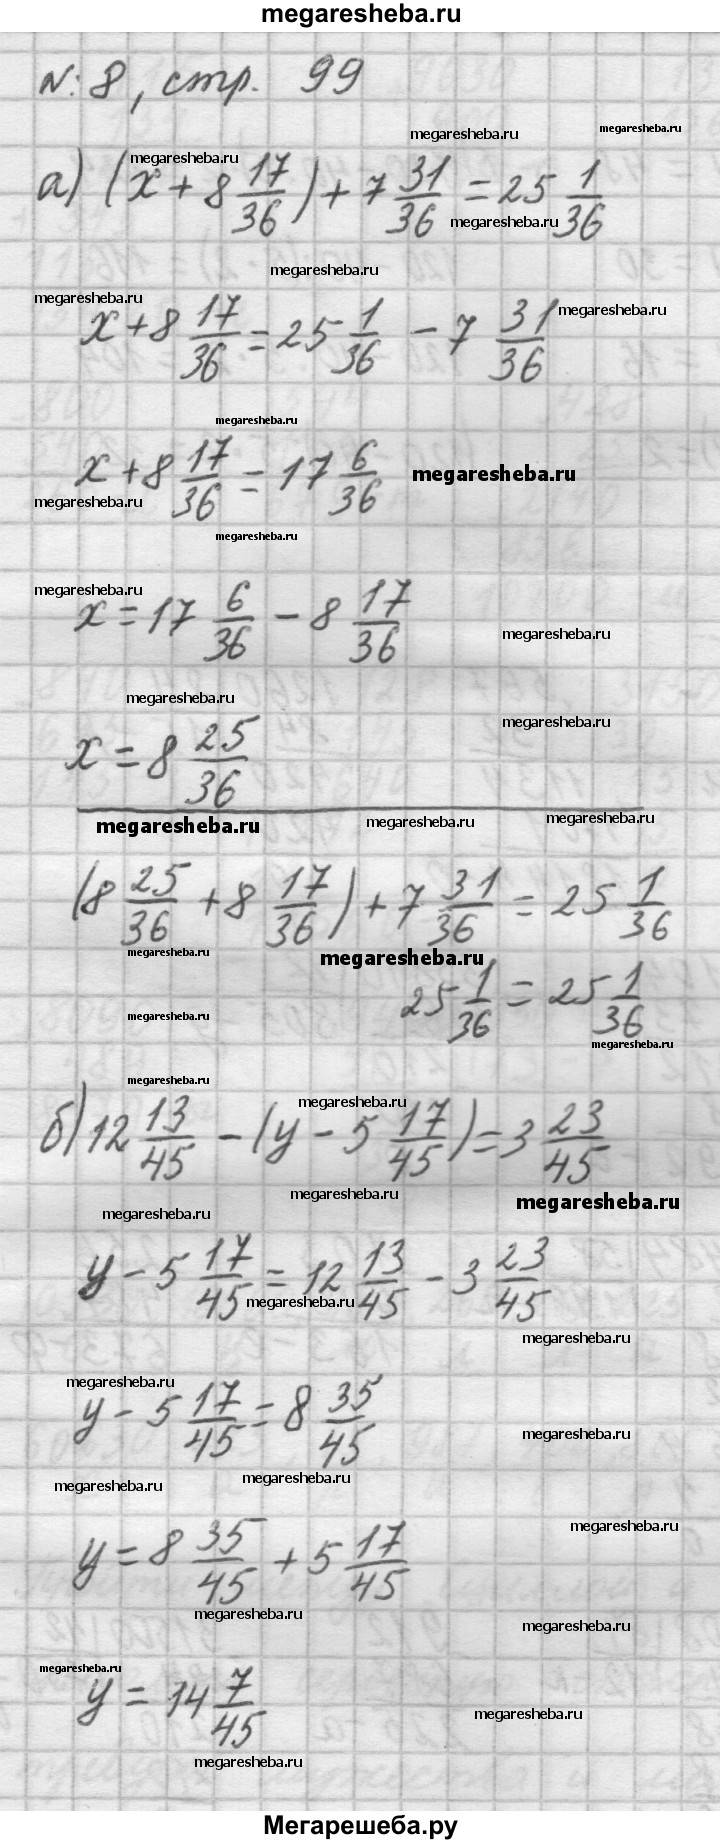 megaresheba.ru
№: 8, стр. 99
megaresheba.ru megaresheba.ru
megaresheba.ru
а) (x + 8 17/36) + 7 31/36 = 25 1/36
megaresheba.ru
megaresheba.ru
megaresheba.ru megaresheba.ru
x + 8 17/36 = 25 1/36 - 7 31/36
megaresheba.ru
x + 8 17/36 = 17 6/36
megaresheba.ru
megaresheba.ru
megaresheba.ru
megaresheba.ru
x = 17 6/36 - 8 17/36
megaresheba.ru
megaresheba.ru
megaresheba.ru
x = 8 25/36
megaresheba.ru megaresheba.ru megaresheba.ru
(8 25/36 + 8 17/36) + 7 31/36 = 25 1/36
megaresheba.ru megaresheba.ru
25 1/36 = 25 1/36
megaresheba.ru megaresheba.ru
megaresheba.ru
megaresheba.ru
б) 12 13/45 - (y - 5 17/45) = 3 23/45
megaresheba.ru megaresheba.ru
megaresheba.ru
y - 5 17/45 = 12 13/45 - 3 23/45
megaresheba.ru
megaresheba.ru
megaresheba.ru
y - 5 17/45 = 8 35/45
megaresheba.ru
megaresheba.ru megaresheba.ru
megaresheba.ru
y = 8 35/45 + 5 17/45
megaresheba.ru
megaresheba.ru
megaresheba.ru
y = 14 7/45
megaresheba.ru
megaresheba.ru
Мегарешеба.ру